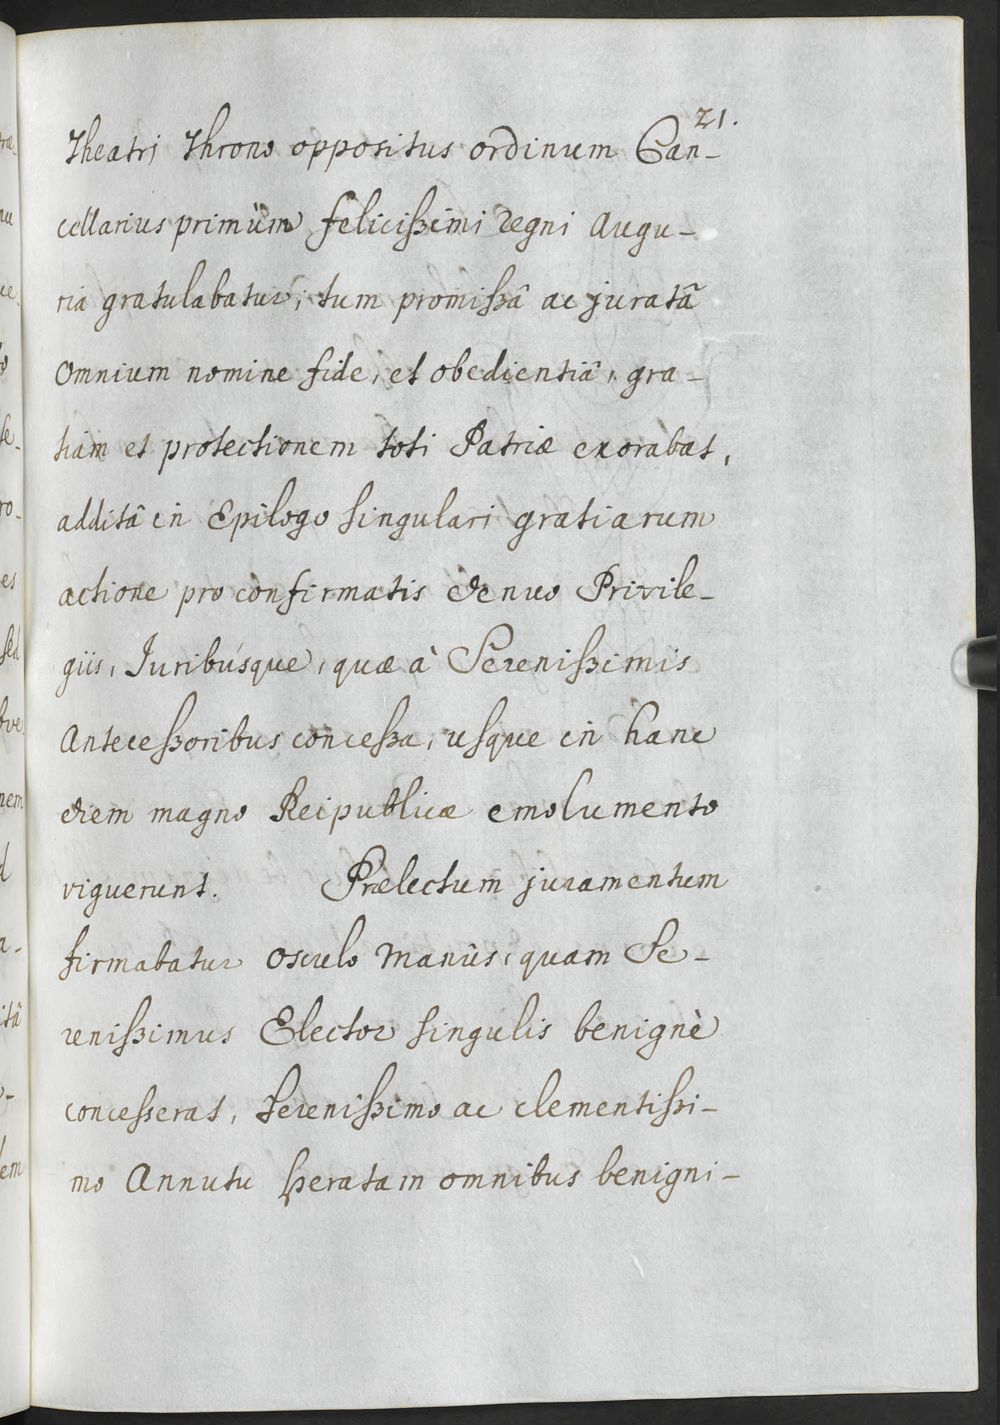 21.
Theatri Throno oppositus ordinum Can-
cellarius primùm felicißimi regni Augu-
ria gratulabatur; tum promißâ ac juratâ
Omnium nomine fide, et obedientiâ, gra-
tiam et protectionem toti Patriæ exorabat,
additâ in Epilogo singulari gratiarum
actione pro confirmatis denuo Privile-
giis, Juribúsque, quæ à Serenißimis
Anteceßoribus conceßa, usque in hanc
diem magno Reipublicæ emolumento
viguerunt. Prælectum juramentum
firmabatur osculo Manûs, quam Se-
renißimus Elector singulis benignè
concesserat, Serenißimo ac clementißi-
mo Annutu speratam omnibus benigni-